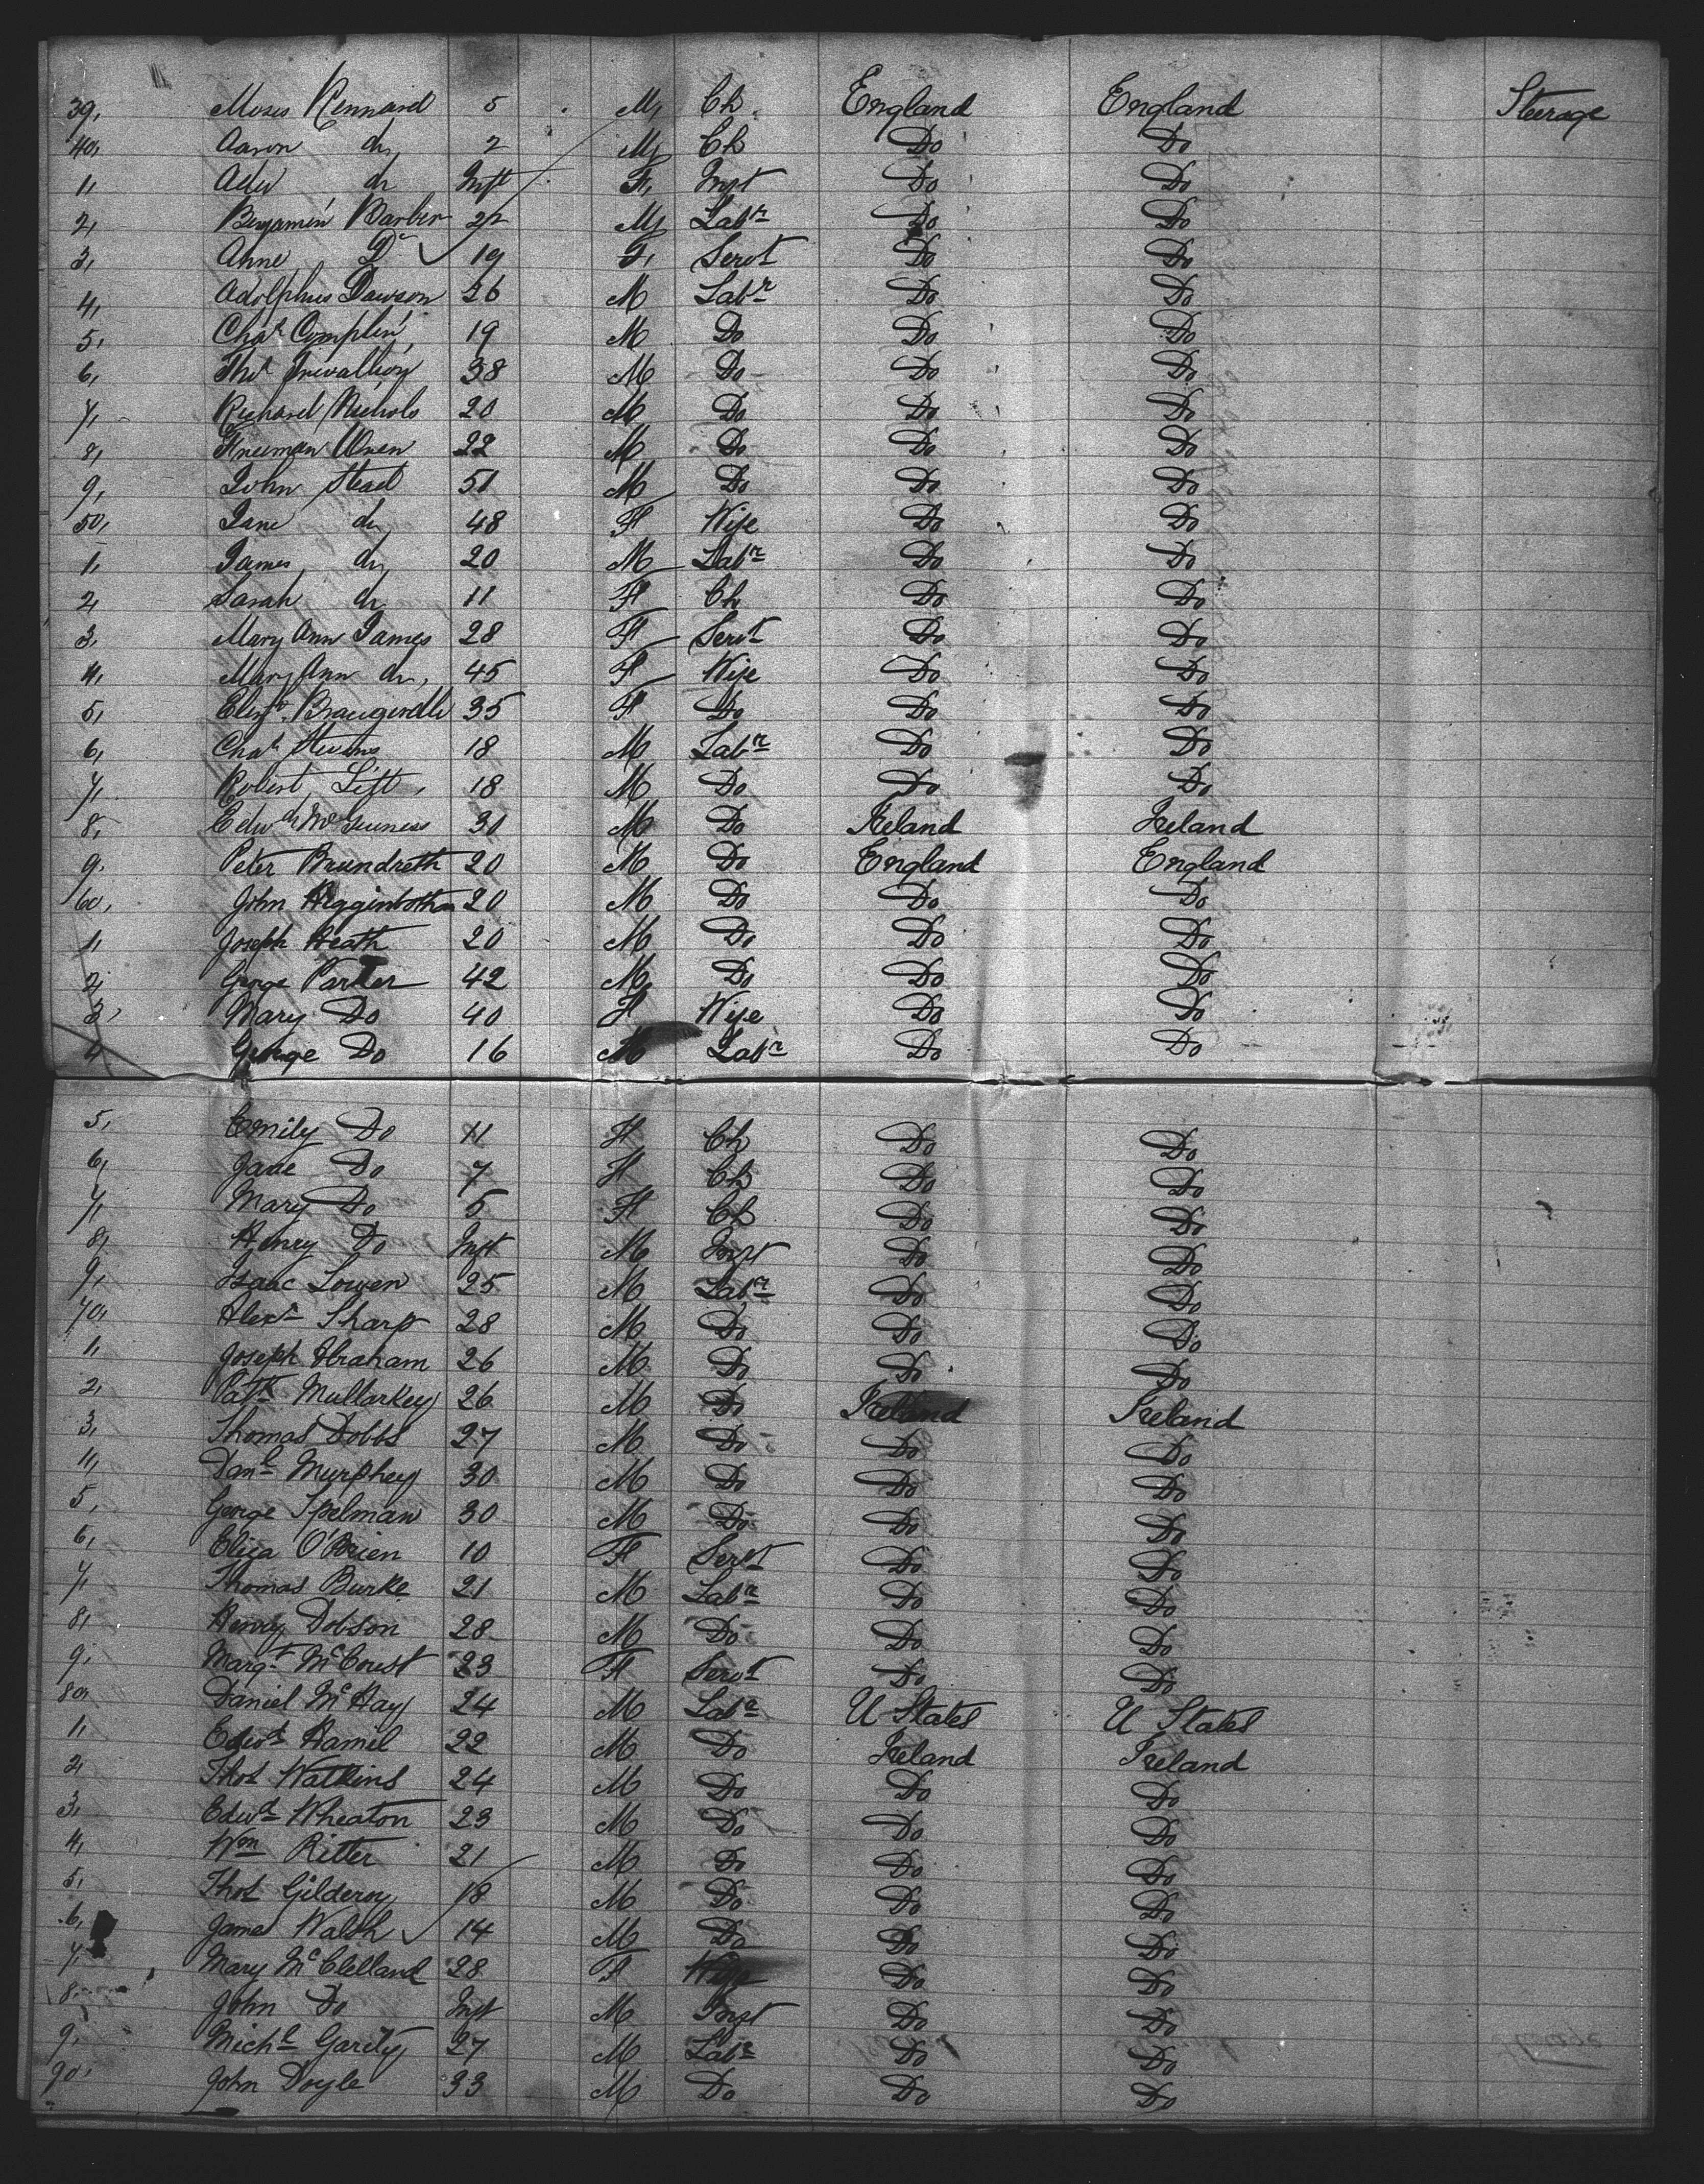 39, Moses Kennard 5 M Ch. England England Steerage
40, Aaron do 2 M Ch Do Do
1, Ada do Inft F, Inft Do Do
2, Benjamin Barber 22 M Labr Do Do
3, Anne Do 19 F, Servt Do Do
4, Adolphus Dawson 26 M Labr Do Do
5, Chas Complin 19 M Do Do Do
6, Thos Trevallion 38 M Do Do Do
7, Richard Nichols 20 M Do Do Do
8, Freeman Wren 22 M Do Do Do
9, John Stead 51 M Do Do Do
50, Jane do 48 F Wife Do Do
1, James do 20 M Labr Do Do
2, Sarah do 11 F Ch Do Do
3, Mary Ann James 28 F Servt Do Do
4, Mary Ann do, 45 F Wife Do Do
5, 35 F Do Do Do
6, Chas Stevens 18 M Labr Do Do
7, Robert Lift 18 M Do Do Do
8, Edwd McGuiness 31 M Do Ireland Ireland
9. Peter Brundreth 20 M Do England England
60, John Higginbotham 20 M Do Do Do
1, Joseph Heath 20 M Do Do Do
2, George Parker 42 M Do Do Do
3, Mary Do 40 F Wife Do Do
4 George Do 16 M Labr Do Do
5, Emily Do 11 F Ch Do Do
6, Jane Do 7 F Ch Do Do
7, Mary Do 5 F Ch Do Do
8, Henry Do Inft M Inft Do Do
9, Isaac Lowen 25 M Labr Do Do
70, Alexr Sharp 28 M Do Do Do
1, Joseph Abraham 26 M Do Do Do
2, Patk Mullarkey 26 M Do Ireland Ireland
3, Thomas Dobbs 27 M Do Do Do
4, Danl Murphey 30 M Do Do Do
5, George Spelman 30 M Do Do Do
6, Eliza O'Brien 10 F Servt Do Do
7, Thomas Burke 21 M Labr Do Do
8, Henry Dobson 28 M Do Do Do
9, Margt McCourt 23 F Servt Do Do
80, Daniel McKay 24 M Labr U States U States
1, Edwd Hamil 22 M Do Ireland Ireland
2, Thos Watkins 24 M Do Do Do
3, Edwd Wheaton 23 M Do Do Do
4, Wm Ritter 21 M Do Do Do
5, Thos Gilderoy 18 M Do Do Do
6, James Walsh 14 M Do Do Do
7, Mary McClelland 28 F Wife Do Do
8. John Do Inft M Inft Do Do
9, Michl Garity 27 M Labr Do Do
90, John Doyle 33 M Do Do Do